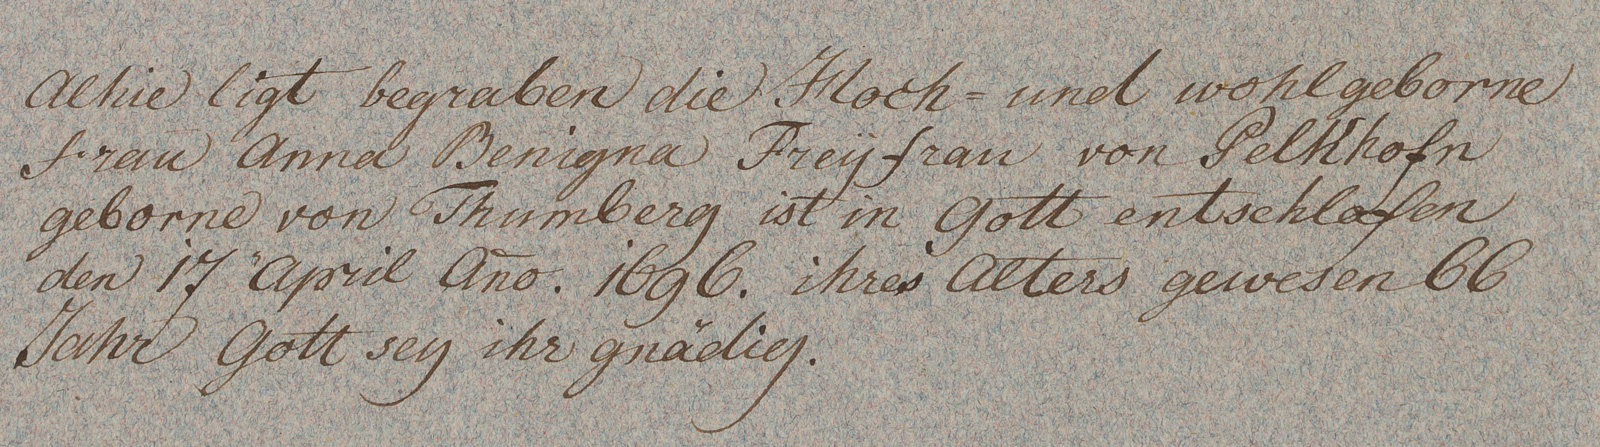 Alhie ligt begraben die Hoch= und wohlgeborne
frau Anna Benigna Freÿfrau von Pelkhofn
geborne von Thumberg ist in Gott entschlafen
den 17 April Año. 1696. ihres Alters gewesen 66
Jahr Gott sey ihr gnädig.